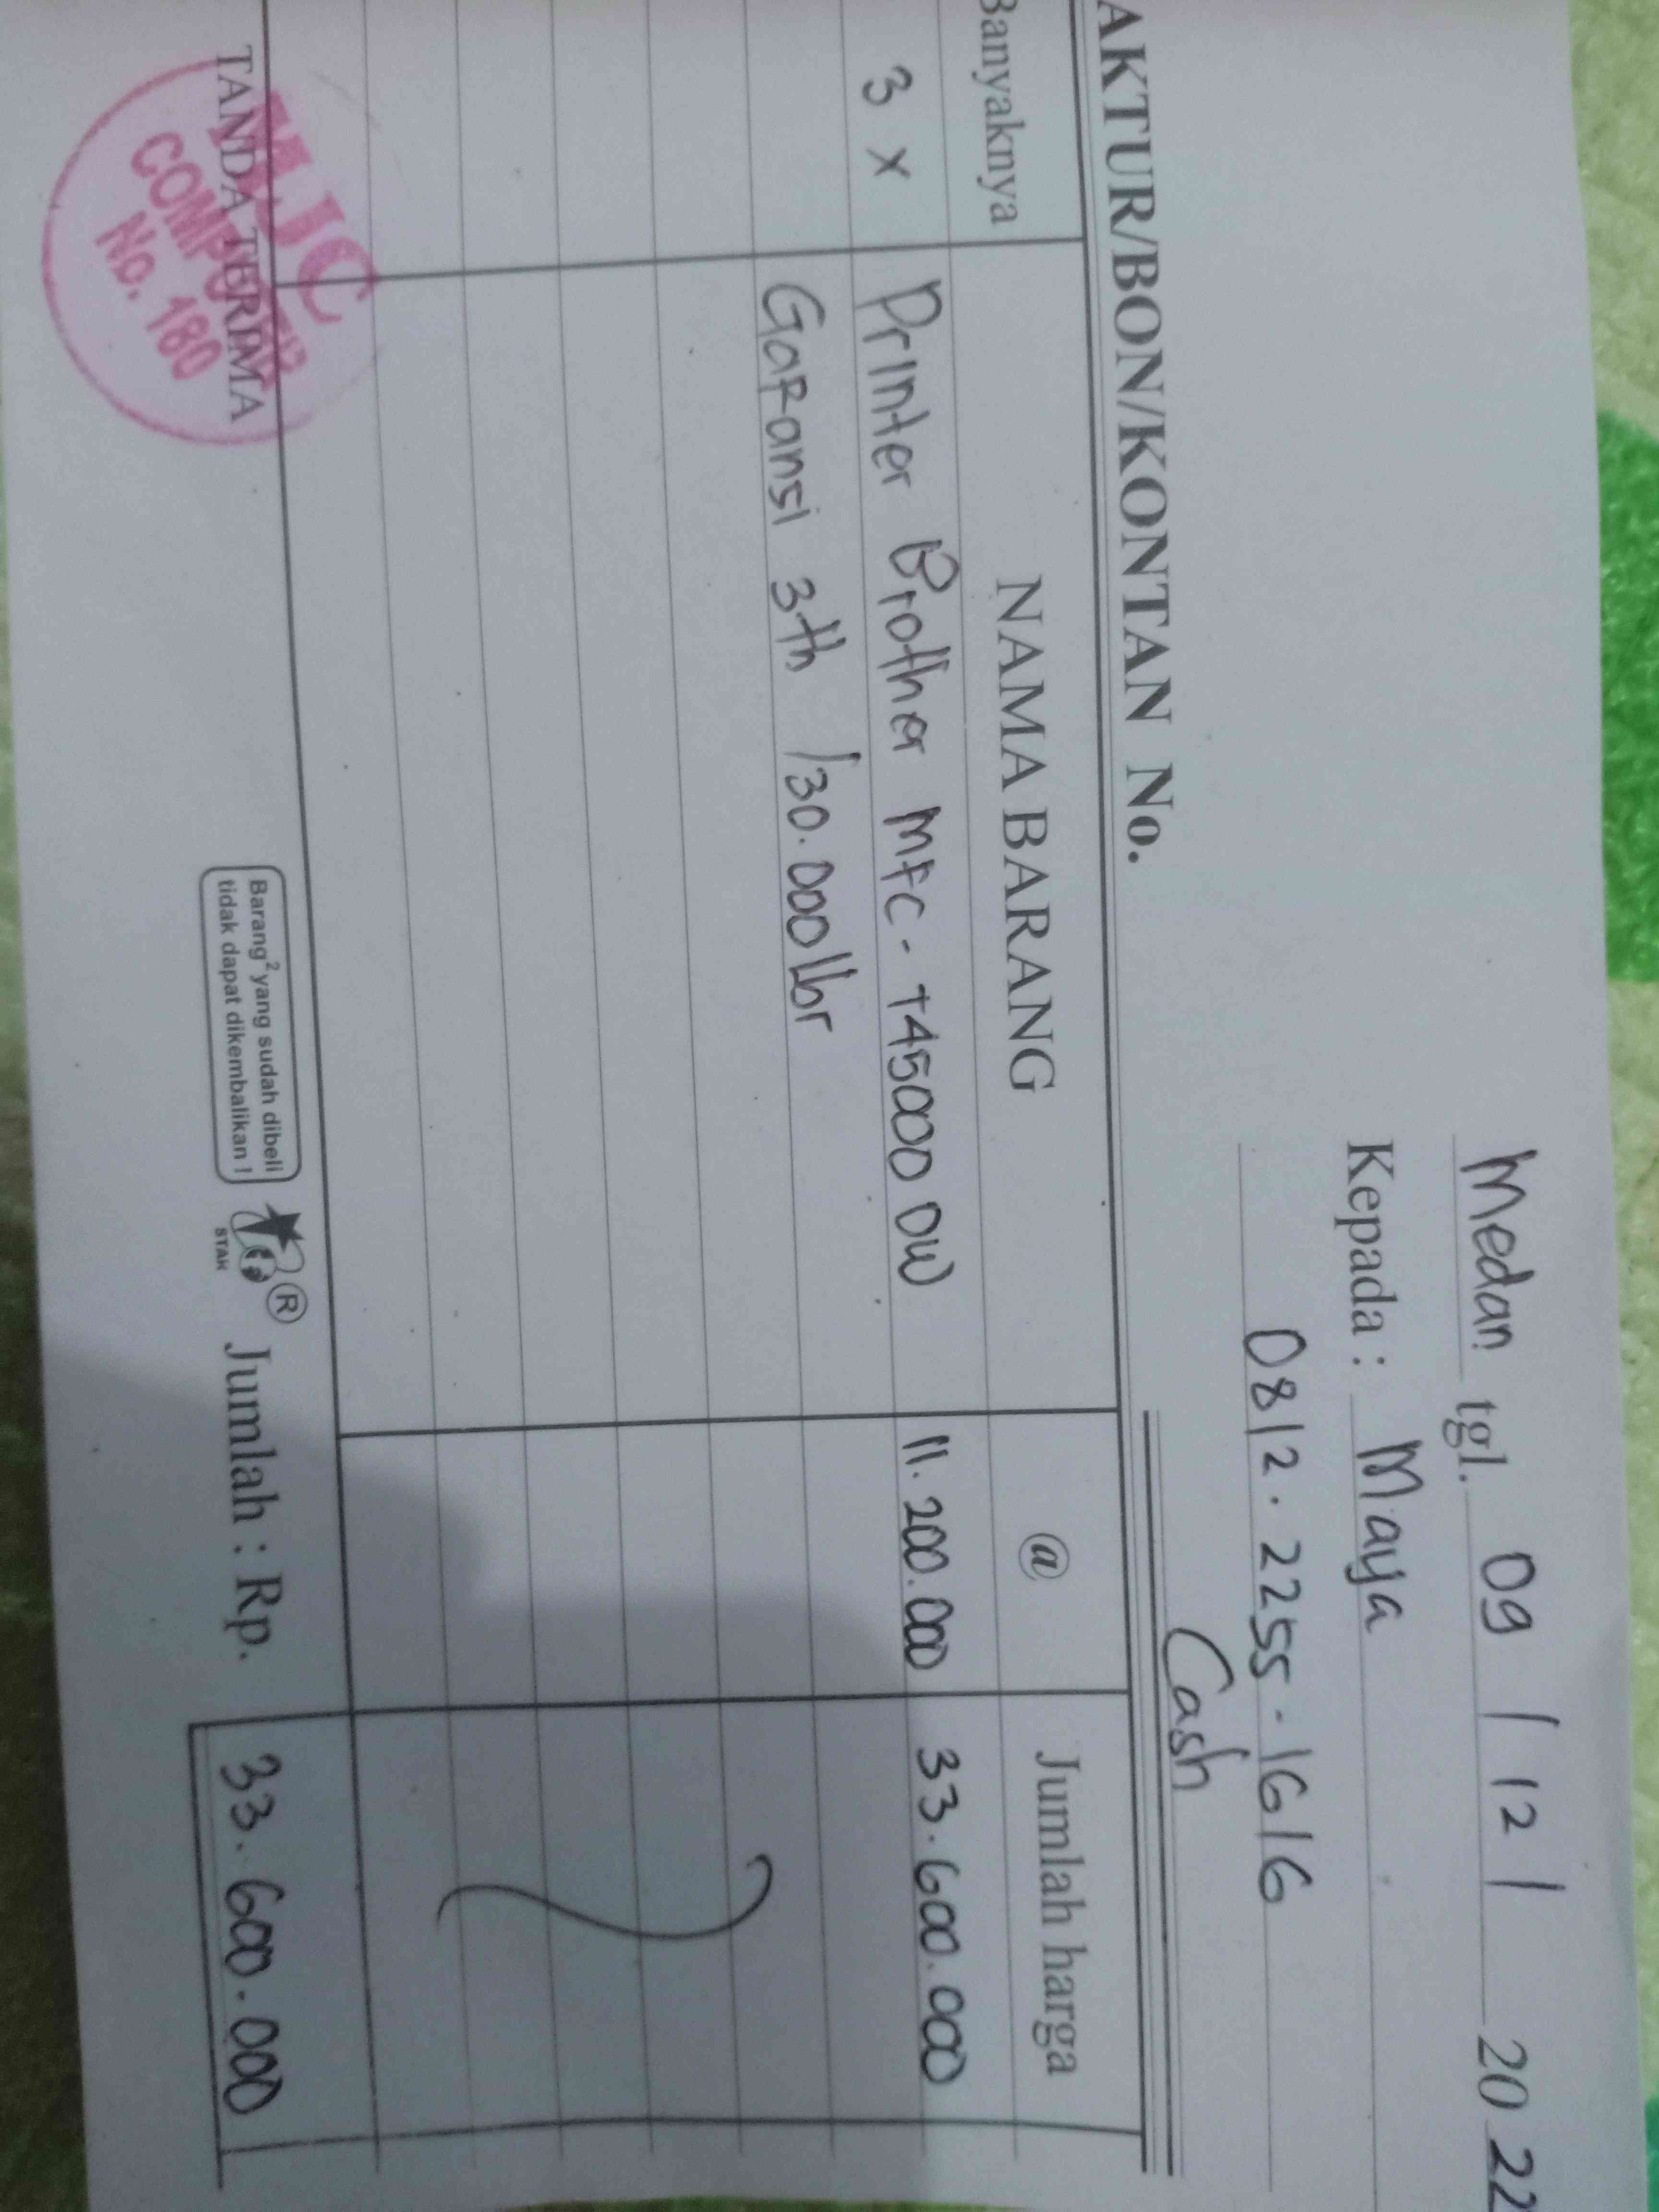 Medan tgl. 09 / 12 / 20 22
Kepada : Maya
0812 . 2255 - 1616
AKTUR/BON/KONTAN No.
Cash
Banyaknya NAMA BARANG @ Jumlah harga
3 x Printer Brother MFC - T45000 DW 11.200.000 33.600.000
Garansi 3th /30.000 lbr
TANDA TERIMA
MJC
COMPUTER
No. 180
Barang² yang sudah dibeli
tidak dapat dikembalikan !
®
STAR
Jumlah : Rp. 33.600.000